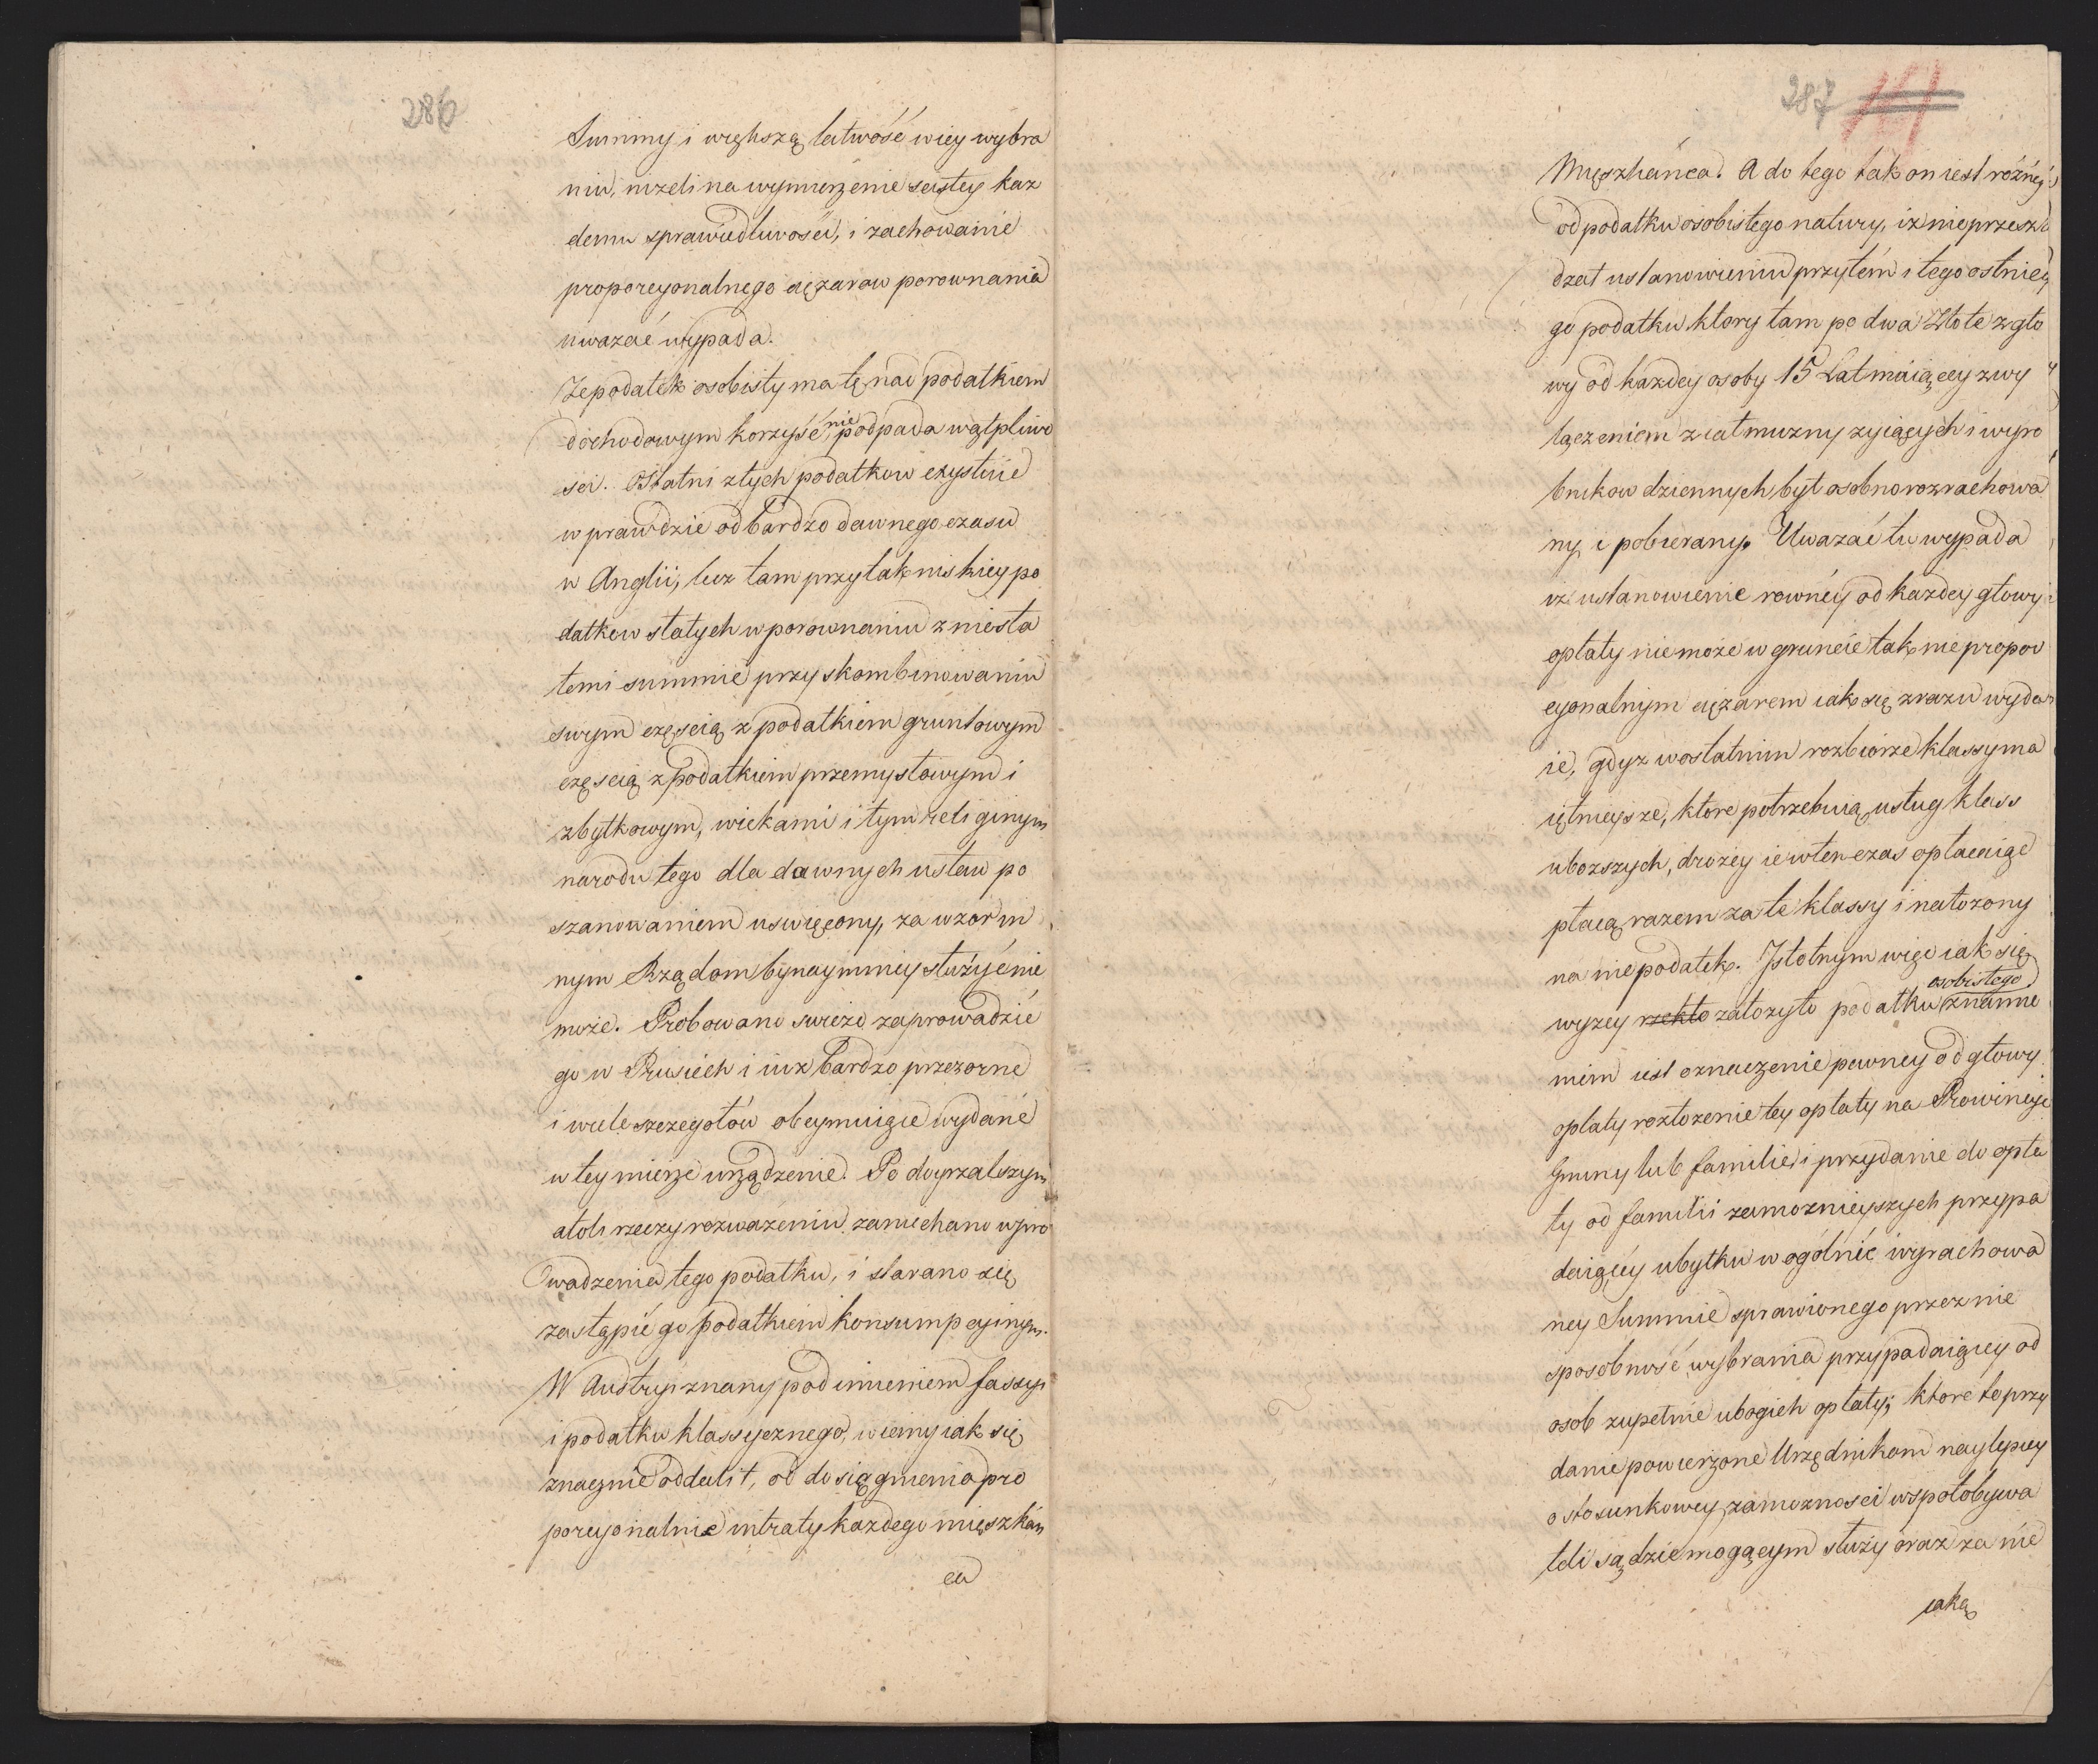 286
Summy i większą łatwość w iey wybra
niu, niżeli na wymierzenie scisłey każ
demu sprawiedliwości, i zachowanie
proporcyonalnego ciężarow porownania
uwazać wypada.
Ze podatek osobisty ma tę nad podatkiem
dochodowym korzyść, nie podpada wątpliwo
sci. Ostatni z tych podatkow exystuie
w prawdzie od bardzo dawnego czasu
w Anglii, lecz tam przy tak niskiey po
datkow stałych w porownaniu z niesta
łemi summie przy skombinowaniu
swym częscią z podatkiem gruntowym
częscią z podatkiem przemysłowym i
zbytkowym, wiekami i tym religinym
narodu tego dla dawnych ustaw po
szanowaniem uswięcony, za wzor in
nym Rządom bynaymniey służyć nie
może. Probowano swiezo zaprowadzić
go w Prusiech i iuz bardzo przezorne
i wiele szczegołów obeymuiące wydane
w tey mierze urządzenie. Po doyrzalszym
atoli rzeczy rozwazeniu zaniechano wpro
wadzenia tego podatku, i starano się
zastąpić go podatkiem konsumpcyinym.
W Austryi znany pod imieniem fassyi
i podatku klassycznego, wiemy iak się
znacznie oddalił, od dosiągnienia pro
porcyonalnie intraty każdego mięszkań
ca
287
Mięszkańca. A do tego tak on iest różnéy
od podatku osobistego natury, iz nie przeszka
dzał ustanowieniu przytém i tego ostnie
go podatku ktory tam po dwa Złote z gło
wy od kazdey osoby 15 Lat maiącey z wy
łączeniem z iałmuzny zyiących i wyro
bnikow dziennych był osobno rozrachowa
ny i pobierany. Uwazać tu wypada
iz ustanowienie rowney od kazdey głowy
opłaty nie może w gruncie tak nie propor
cyonalnym ciężarem iak się zrazu wyda
ie, gdyz w ostatnim rozbiorze klassy ma
iętnieysze, ktore potrzebuią usług klass
ubozszych, drożey ie wtenczas opłacaiąc
płacą razem za te klassy i nałozony
na nie podatek. Istotnym więc iak się
wyzey rzekło załozyło podatku osobistego znamie
niem iest oznaczenie pewney od głowy
opłaty rozłozenie tey opłaty na Prowincye
Gminy lub familie i przydanie do opła
ty od familii zamoznieyszych przypa
daiącey ubytku w ogólnie wyrachowa
ney Summie sprawionego przez nie
sposobność wybrania przypadaiącey od
osob zupełnie ubogich opłaty; ktore to przy
danie powierzone Urzędnikom naylepiey
o stosunkowey zamoznosci wspołobywa
teli sądzić mogącym służy oraz za nie
iaką